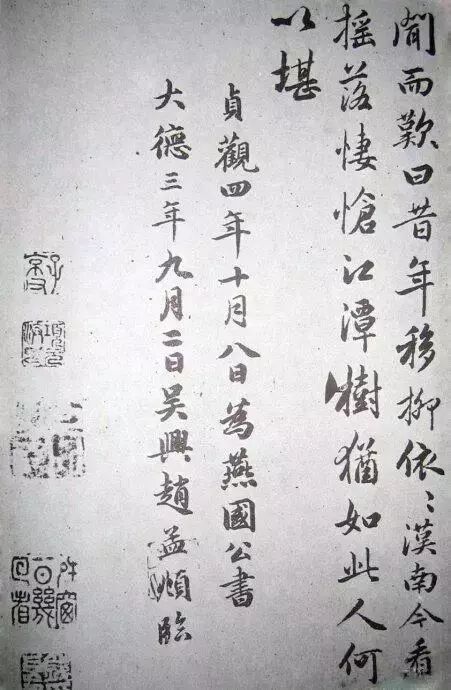 聞而歎曰昔年移柳依〻漢南今看
搖落悽愴江潭樹猶如此人何
以堪
貞觀四年十月八日為燕國公書
大德三年九月二日吳興趙孟頫臨